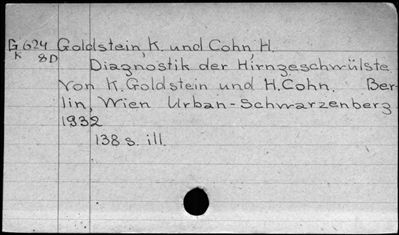 G 624 Goldstein, K. und Cohn, H.
K 8D
Diagnostik der Hirngeschwülste
von K. Goldstein und H. Cohn. Ber-
lin, Wien Urban-Schwarzenberg
1932
138 s. ill.